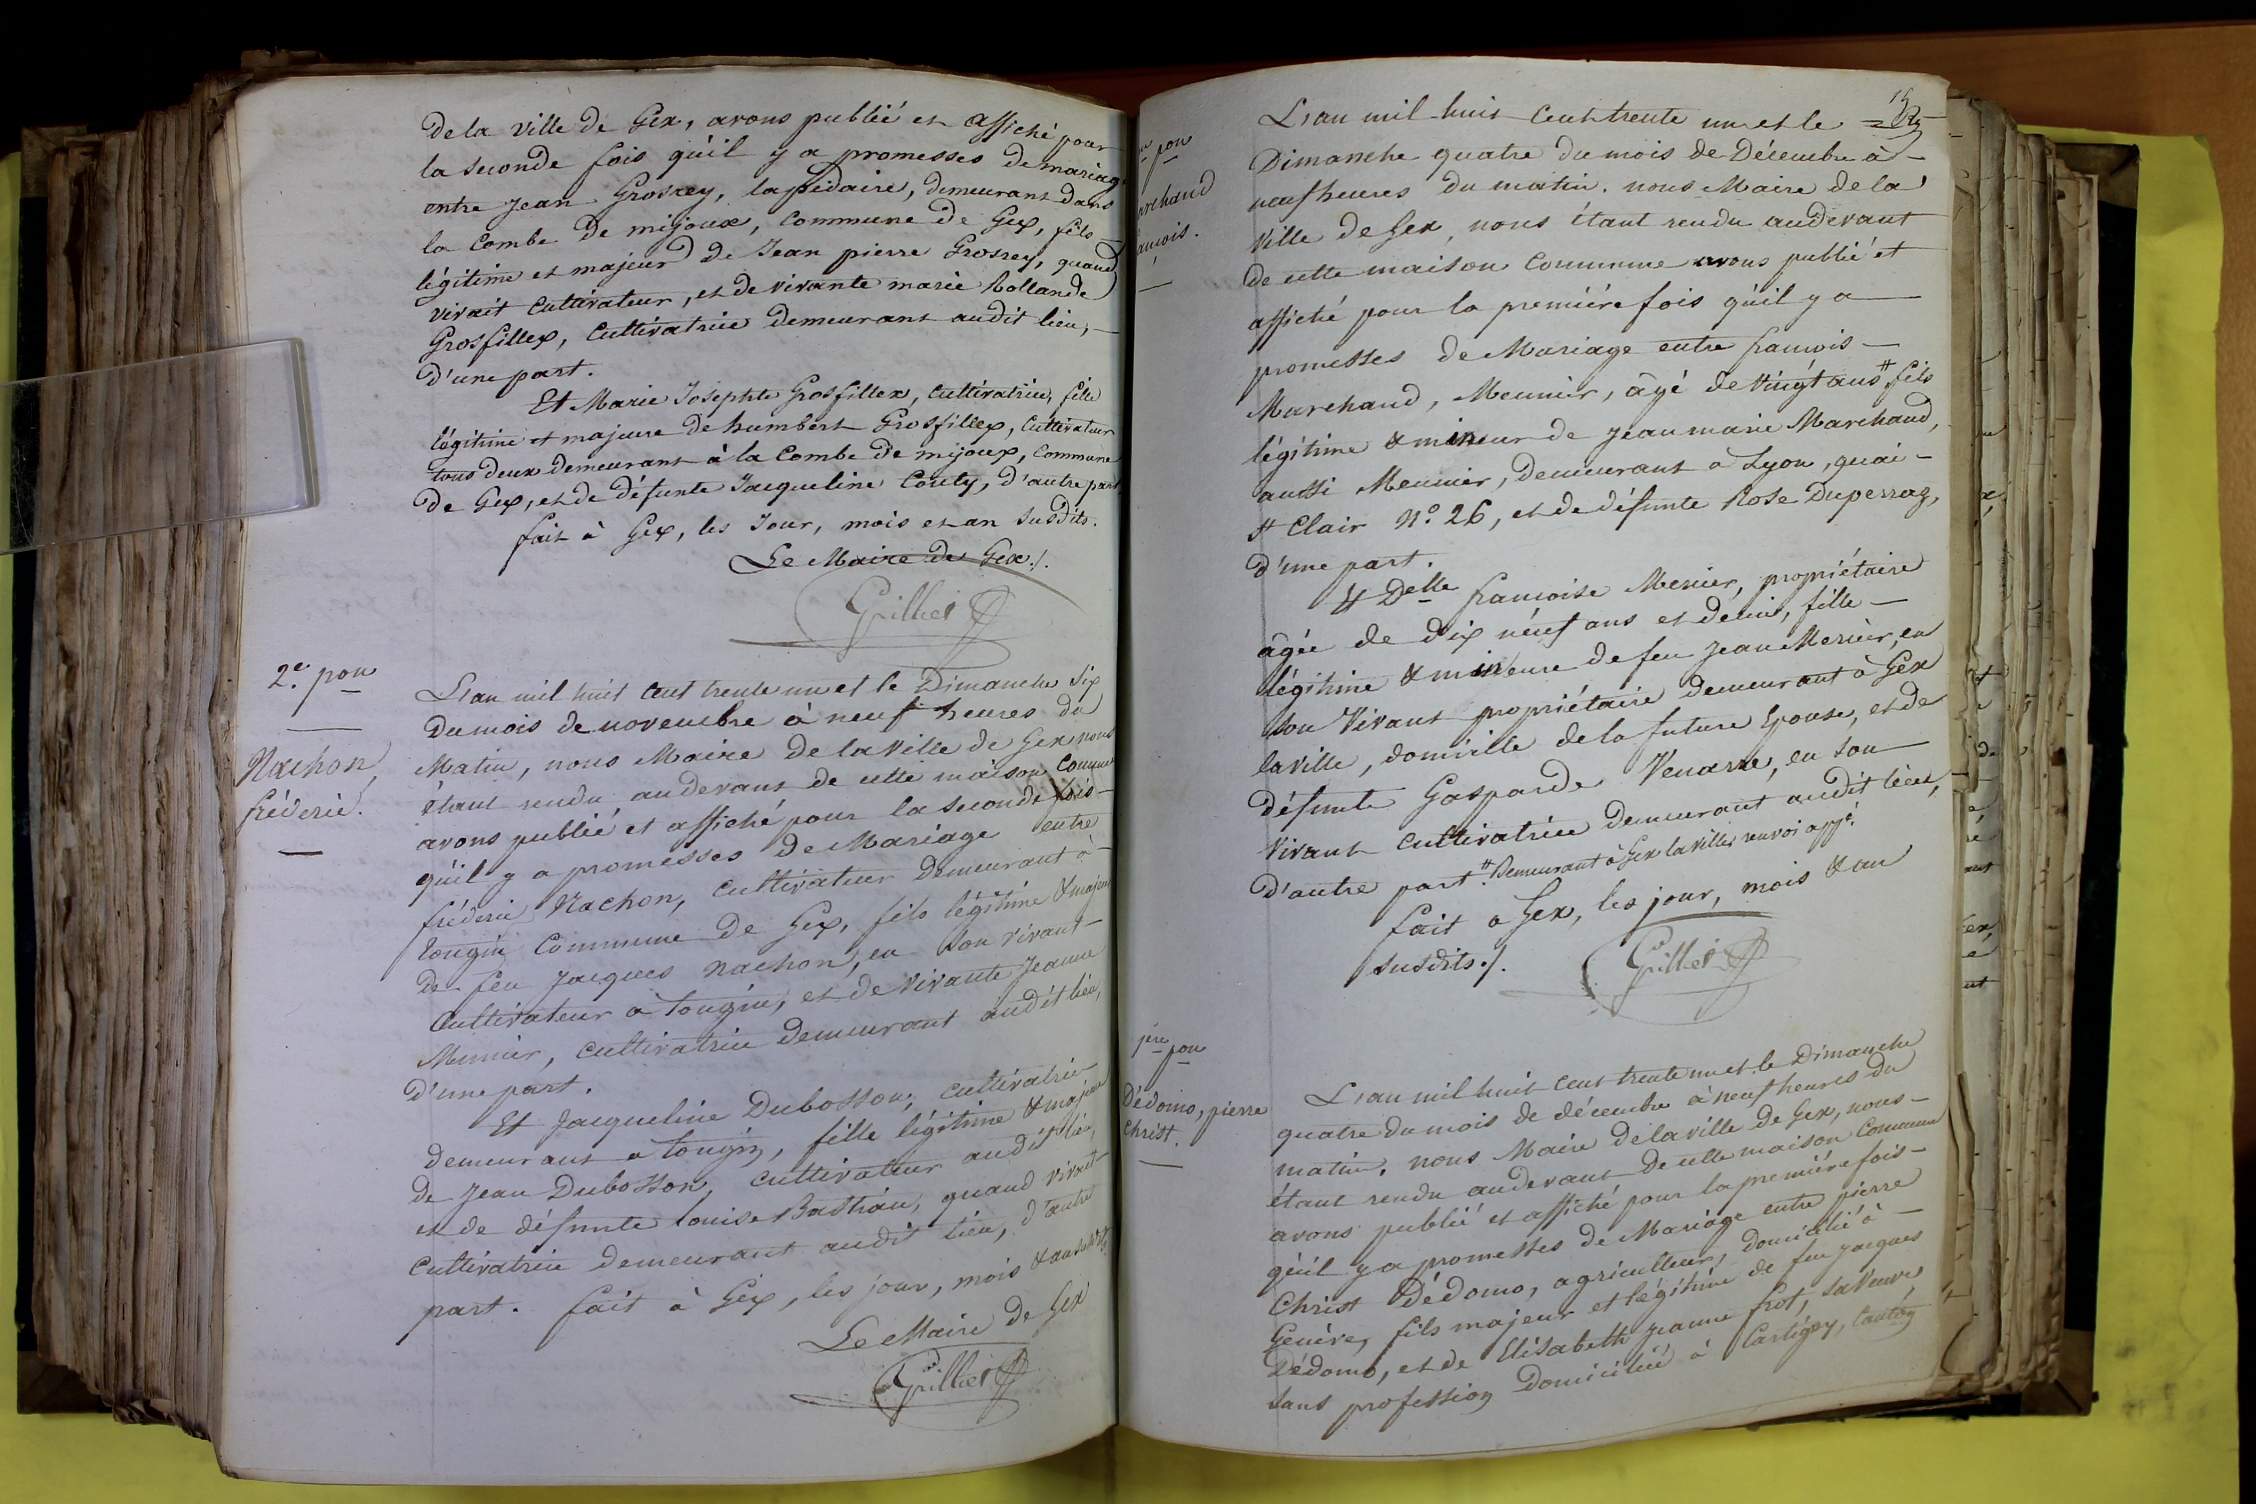 de la ville de Gex, avons publié et affiché pour
la seconde fois qu'il y a promesses de mariage
entre Jean Grosrey, lapidaire, demeurant dans
la Combe de mijoux, Commune de Gex, fils
légitime et majeur de Jean pierre Grosrey, quand
vivait Cultivateur, et de vivante marie Rollande
Grosfillex, Cultivatrice demeurant audit lieu,
d'une part.
Et Marie Josephte Grosfillex, Cultivatrice, fille
légitime et majeure de humbert Grosfillex, Cultivateur
tous deux demeurant à la Combe de mijoux, Commune
de Gex, et de défunte Jacqueline Couty, d'autre part
fait à Gex, les Jour, mois et an susdits.
Le Maire de Gex ./.
Grillet
2e. pon
Nachon,
fréderic.
L'an mil huit cent trente un et le Dimanche six
du mois de novembre à neuf heures du
Matin, nous Maire de la Ville de Gex nous
étant rendu audevant de cette maison Commune
avons publié et affiché pour la seconde fois
qu'il y a promesses de Mariage entre
fréderic Nachon, Cultivateur Demeurant à
tougin Commune de Gex, fils légitime & majeur
de feu Jacques nachon, en son vivant
Cultivateur à Tougin, et de Vivante Jeanne
Munier, Cultivatrice demeurant audit lieu,
d'une part.
Et Jacqueline Dubosson, cultivatrice
demeurant a tougin, fille légitime & majeure
de Jean Dubosson, cultivateur audit lieu,
et de défunte louise Bastian, quand vivait
Cultivatrice demeurant audit lieu, d'autre
part. fait à Gex, les jour, mois & an susdits
Le Maire de Gex
Grillet
pon
archand
ançois.
L'an mil huit Cent trente un et le
Dimanche quatre du mois de Décembre à
neuf heures du matin. nous Maire de la
Ville de Gex, nous étant rendu audevant
de cette maison Commune avons publié et
affiché pour la première fois qu'il y a
promesses de Mariage entre francois
Marchand, Meunier, âgé de vingt ans # fils
légitime & mineur de Jean marie Marchand,
aussi Meunier, demeurant a Lyon, quai
St Clair No. 26, et de défunte Rose Duperraz,
d'une part.
Et Delle francoise Mercier, propriétaire
agée de dix néuf ans et demi, fille
légitime & mineure de feu Jean Mercier, en
son Vivant propriétaire demeurant à Gex
la ville, domicille de la future Epouse, et de
défunte Gasparde Venarre, en son
Vivant Cultivatrice demeurant audit lieu,
d'autre part. # Demeurant à Gex la ville, renvoi appé.
fait a Gex, les jour, mois & an
susdits ./.
Grillet
1ere pon
Dédomo, pierre
Christ.
L'an mil huit cent trente un et le Dimanche
quatre du mois de décembre à neuf heures du
matin, nous Maire de la ville de Gex, nous
étant rendu audevant de cette maison Commune
avons publié et affiché pour la première fois
qu'il y a promesses de Mariage entre pierre
Christ Dédomo, agriculteur, domicilié à
Genève, fils majeur et légitime de feu Jacques
Dédomo, et de Elisabeth Jeanne frot, sa Veuve
sans profession Domiciliée à Cartigny, Canton